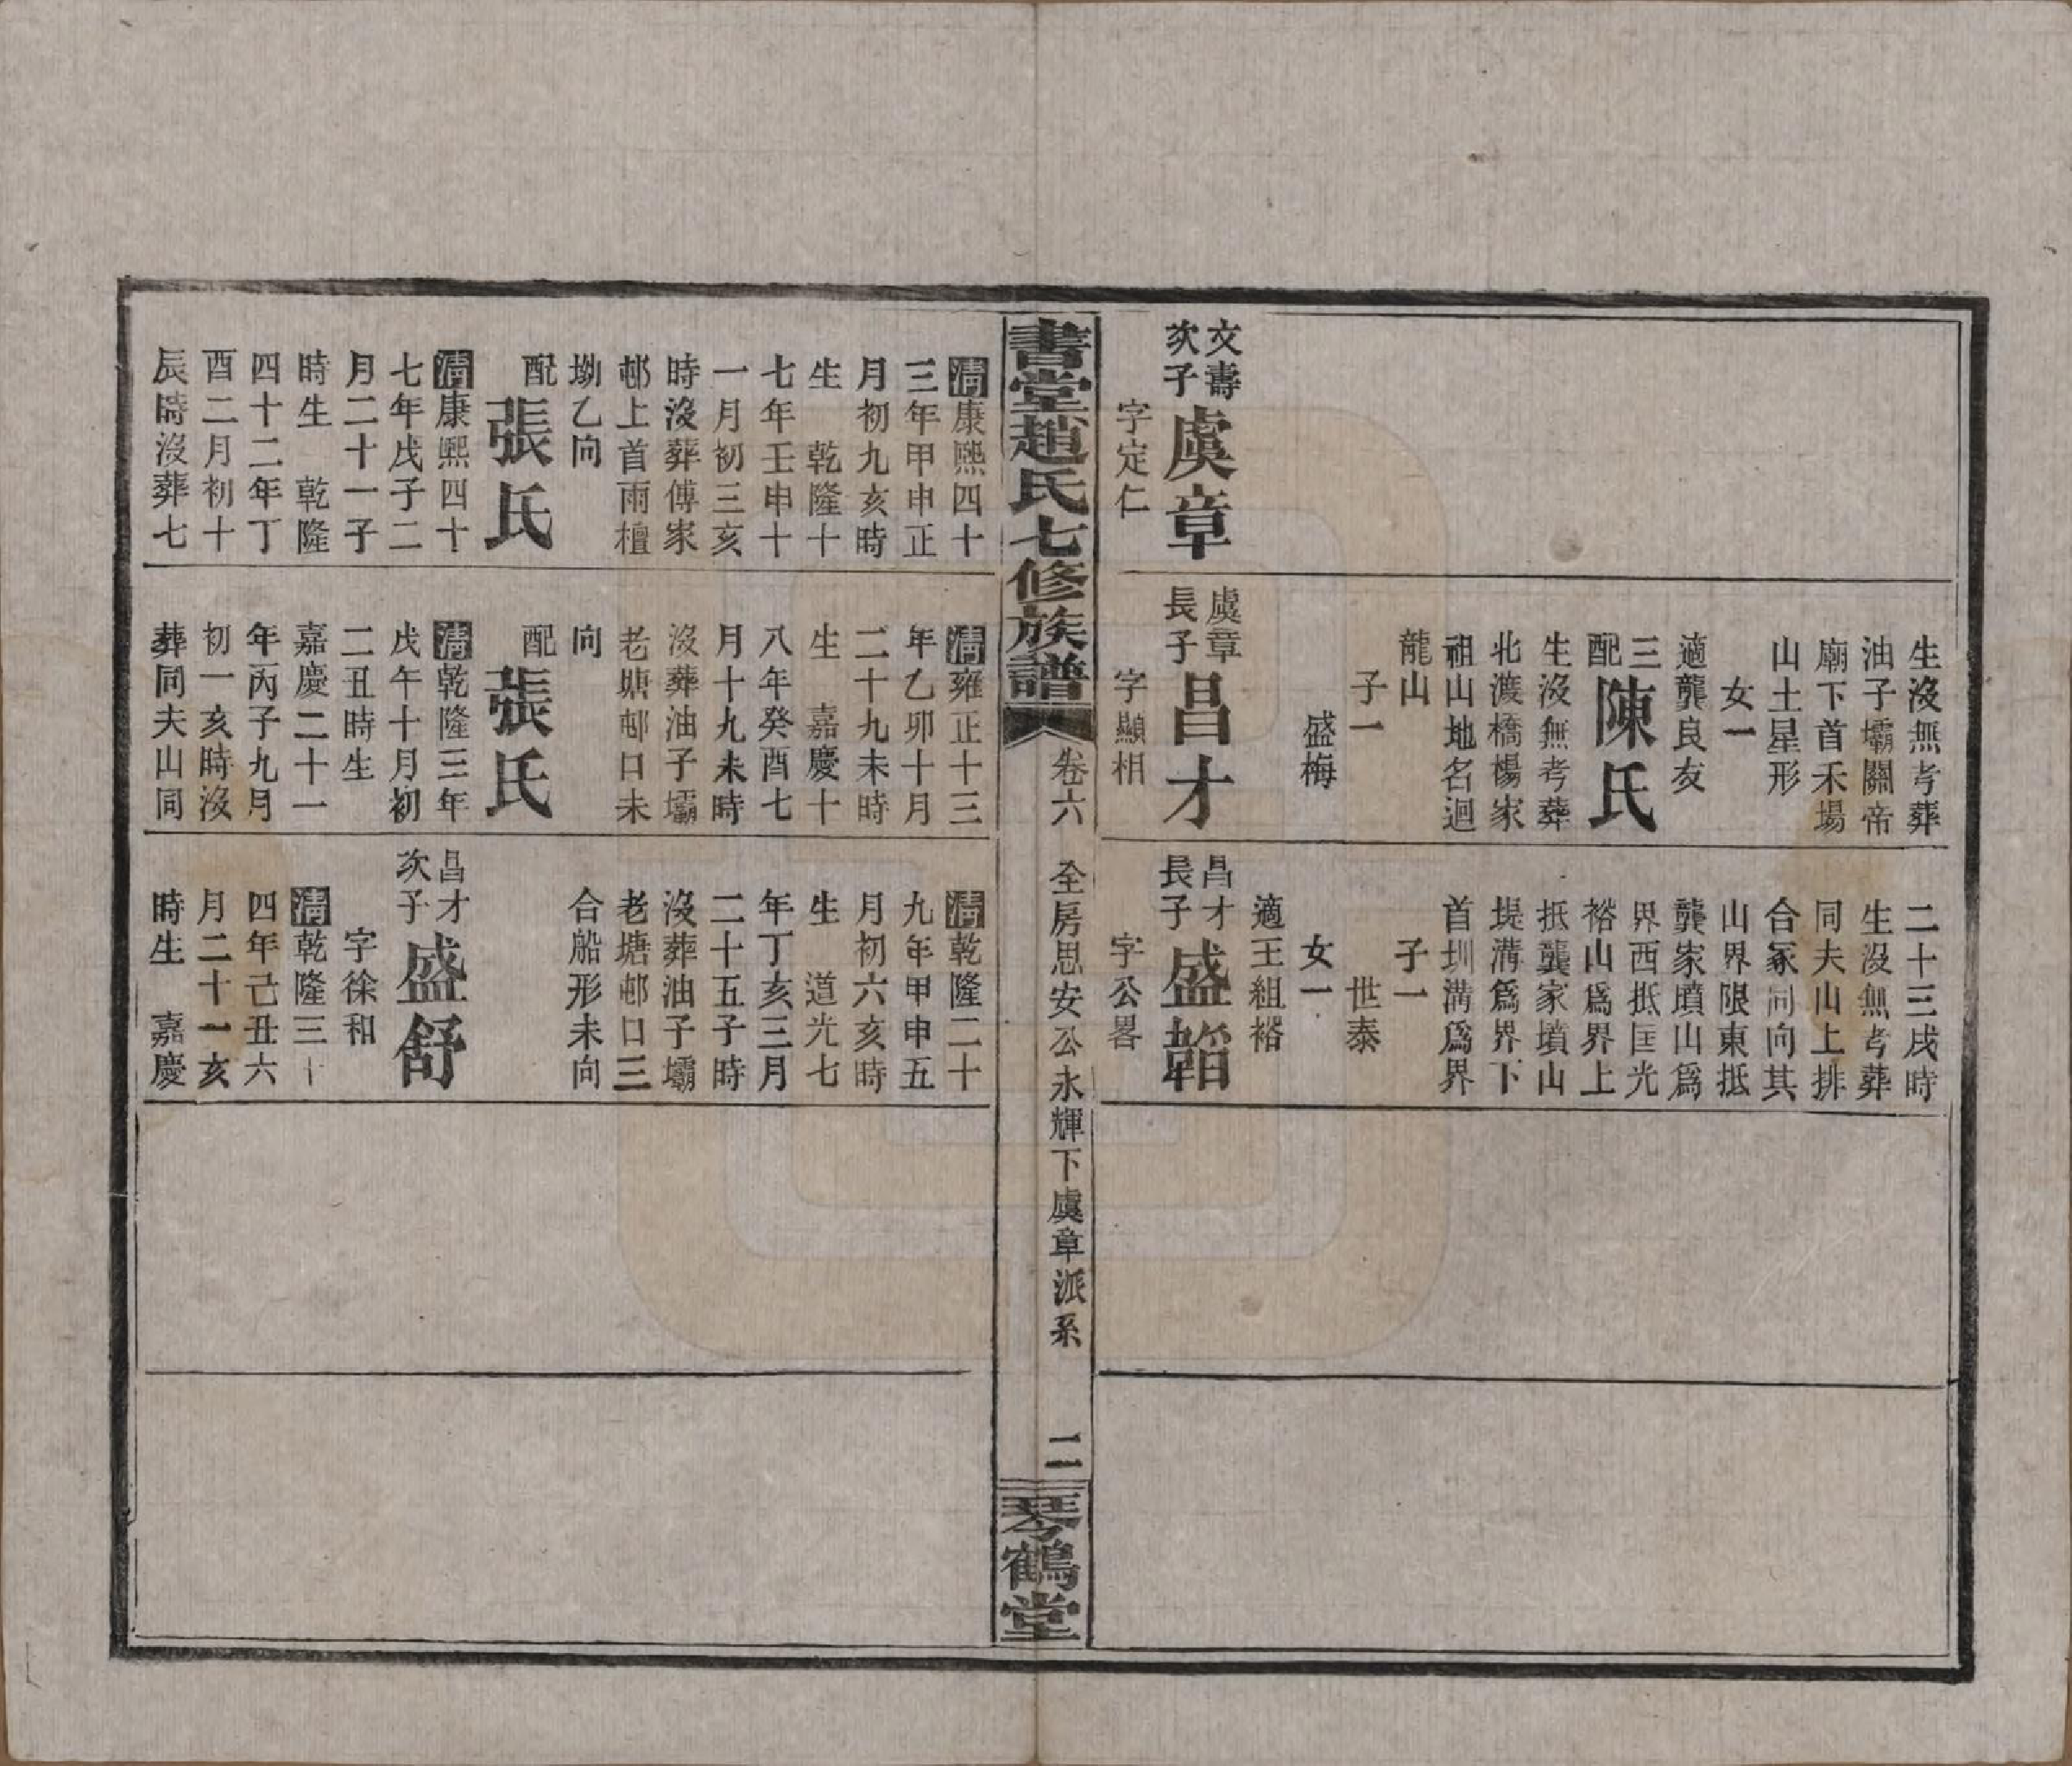 文壽
次子
虞章
字定仁
生沒無考葬
油子壩關帝
廟下首禾場
山土星形
女一
適龔良友
三
配
陳氏
生沒無考葬
北渡橋楊家
祖山地名迴
龍山
子一
盛梅
虞章
長子
昌才
字顯相
二十三戌時
生沒無考葬
同夫山上排
合冢同向其
山界限東抵
龔家墳山爲
界西抵匡光
裕山爲界上
抵龔家墳山
堤溝爲界下
首圳溝爲界
子一
世泰
女一
適王組裕
昌才
長子
盛韜
字公畧
書堂趙氏七修族譜
卷六
全房思安公永輝下虞章派系
二
琴鶴堂
清康熙四十
三年甲申正
月初九亥時
生 乾隆十
七年壬申十
一月初三亥
時沒葬傅家
邨上首雨檀
坳乙向
配
張氏
清康熙四十
七年戊子二
月二十一子
時生 乾隆
四十二年丁
酉二月初十
辰時沒葬七
清雍正十三
年乙卯十月
二十九未時
生 嘉慶十
八年癸酉七
月十九未時
沒葬油子壩
老塘邨口未
向
配
張氏
清乾隆三年
戊午十月初
二丑時生
嘉慶二十一
年丙子九月
初一亥時沒
葬同夫山同
清乾隆二十
九年甲申五
月初六亥時
生 道光七
年丁亥三月
二十五子時
沒葬油子壩
老塘邨口三
合船形未向
昌才
次子
盛舒
字徐和
清乾隆三十
四年己丑六
月二十一亥
時生 嘉慶